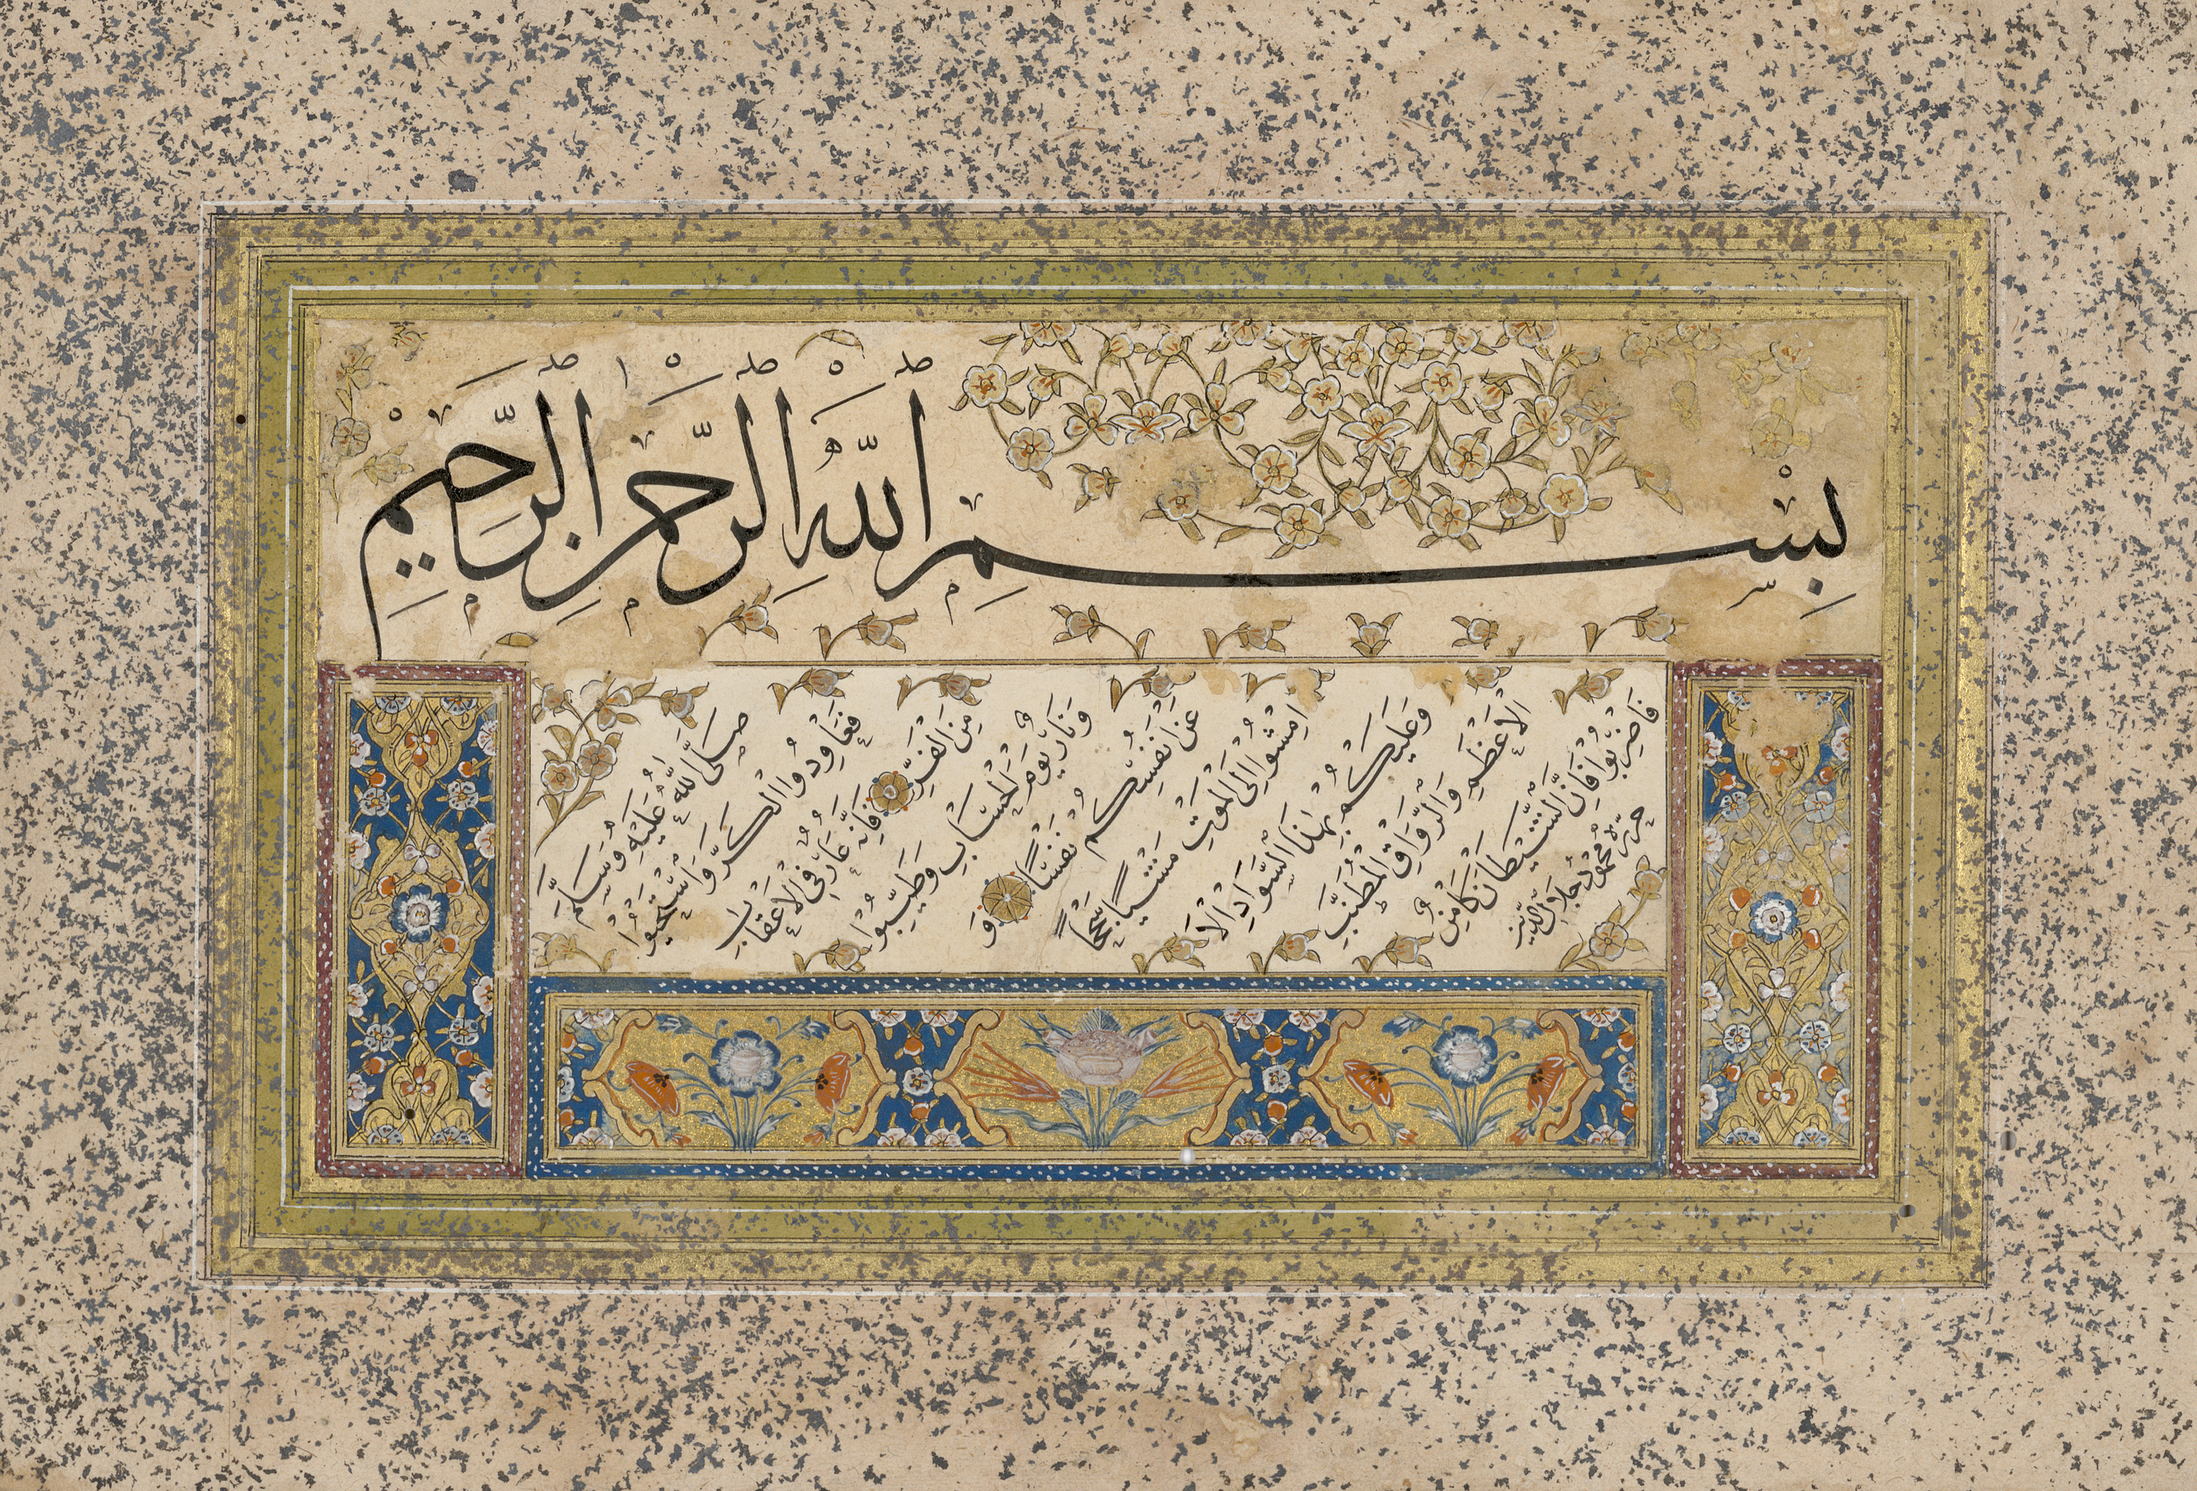 بِسْمِ اللّٰهِ الرَّحْمٰنِ الرَّحِيْمِ
صَلَّى اللّٰهُ عَلَيْهِ وَسَلَّمَ
فَعَاوِدُوا الْكَرَّ وَاسْتَحْيُوْا
مِنَ الْفَرِّ فَاِنَّهُ عَارٌ فِي الْاَعْقَابِ
وَنَارٌ يَوْمَ الْحِسَابِ وَطَيِّبُوْا
عَنْ اَنْفُسِكُمْ نَفْسًا وَ
امْشُوْا اِلَى الْمَوْتِ مَشْيًا سُجْحًا
وَعَلَيْكُمْ بِهٰذَا السَّوَادِ الْاَ
الْاَعْظَمِ وَالرِّوَاقِ الْمُطَنَّبِ
فَاضْرِبُوْا فَاِنَّ الشَّيْطَانَ كَامِنٌ
حرره محمود جلال الدين